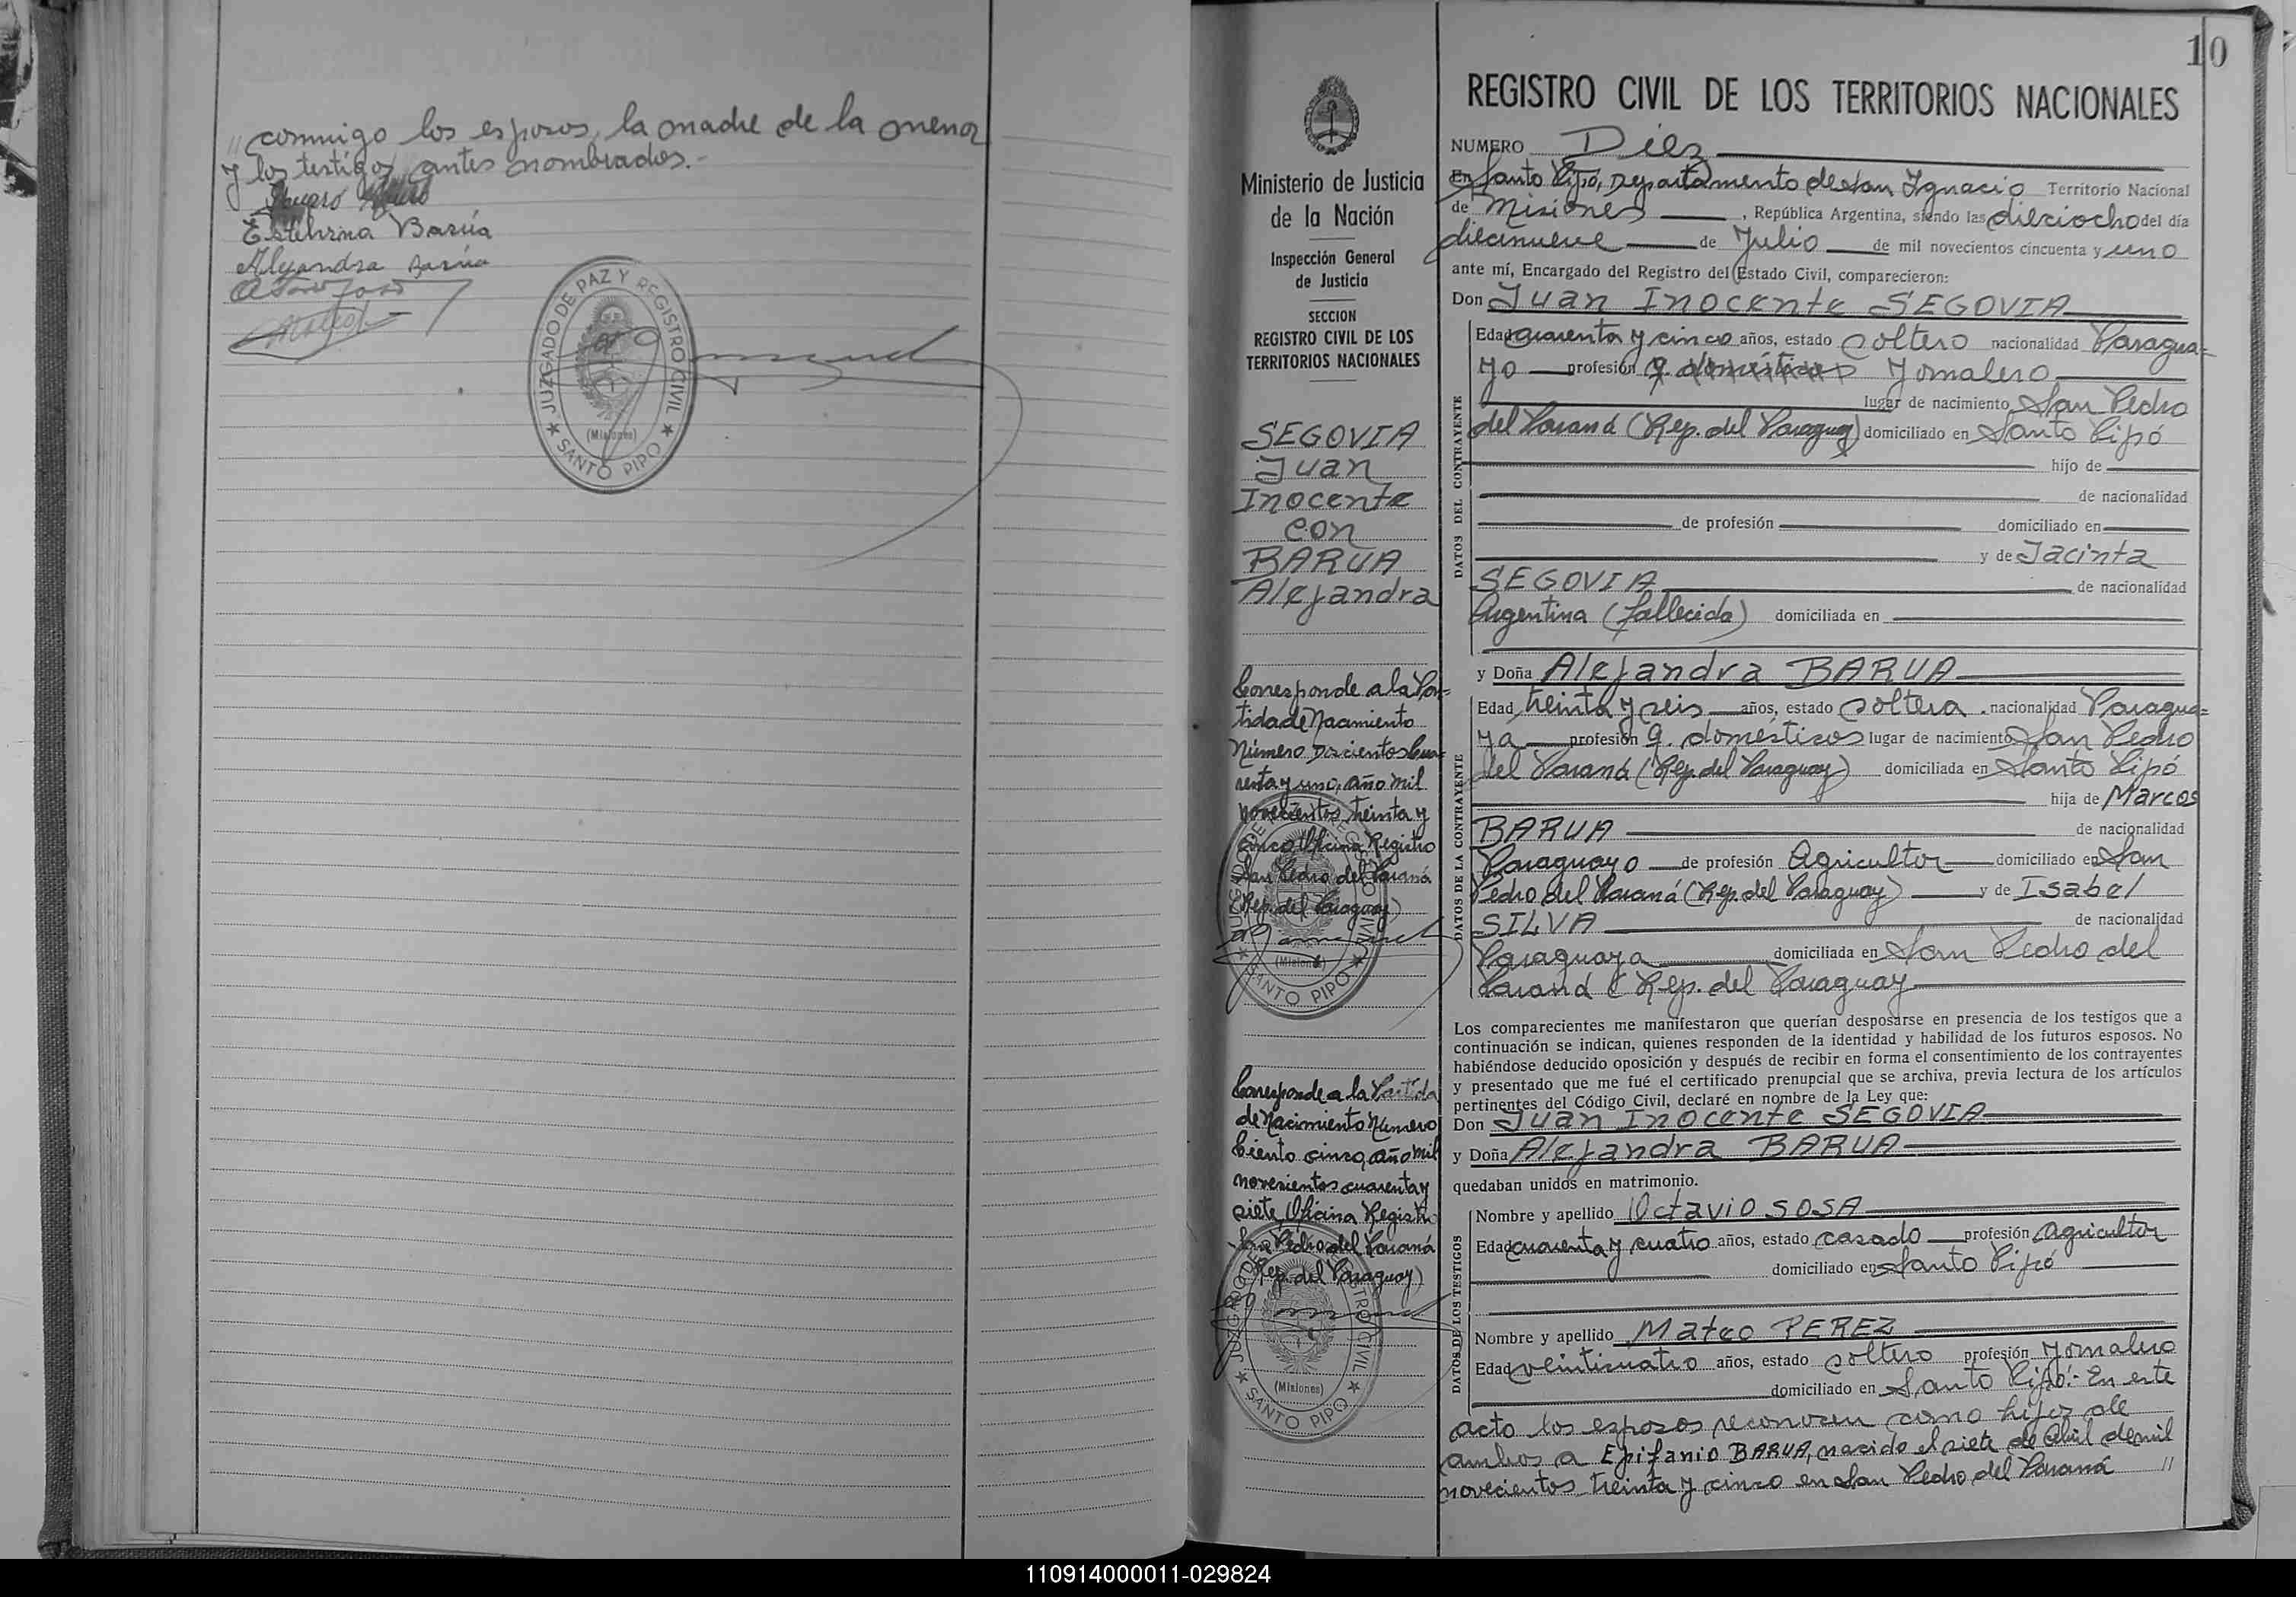 // conmigo los esposos, la madre de la menor
y los testigos antes nombrados.-
Estefana Barúa
Alejandra Barúa
JUZGADO DE PAZ Y REGISTRO CIVIL
(Misiones)
★ SANTO PIPO ★
10
Ministerio de Justicia
de la Nación
Inspección General
de Justicia
SECCION
REGISTRO CIVIL DE LOS
TERRITORIOS NACIONALES
SEGOVIA
Juan
Inocente
con
BARUA
Alejandra
Corresponde a la Par=
tida de Nacimiento
Número Doscientos Cua=
renta y uno, año mil
novecientos treinta y
cinco Oficina Registro
San Pedro del Paraná
(Rep. del Paraguay)
(Misiones)
★ SANTO PIPO ★
Corresponde a la Partida
de Nacimiento Número
Ciento cinco, año mil
novecientos cuarenta y
siete, Oficina Registro
San Pedro del Paraná
(Rep. del Paraguay)
JUZGADO DE REGISTRO CIVIL
(Misiones)
★ SANTO PIPO ★
REGISTRO CIVIL DE LOS TERRITORIOS NACIONALES
NUMERO Diez
En Santo Pipó, Departamento de San Ignacio Territorio Nacional
de Misiones, República Argentina, siendo las dieciocho del día
diecinueve de Julio de mil novecientos cincuenta y uno
ante mí, Encargado del Registro del Estado Civil, comparecieron:
Don Juan Inocente SEGOVIA
DATOS DEL CONTRAYENTE
Edad cuarenta y cinco años, estado soltero nacionalidad Paragua=
yo profesión q. domésticos Jornalero
lugar de nacimiento San Pedro
del Paraná (Rep. del Paraguay) domiciliado en Santo Pipó
hijo de
de nacionalidad
de profesión domiciliado en
y de Jacinta
SEGOVIA de nacionalidad
Argentina (fallecida) domiciliada en
y Doña Alejandra BARUA
DATOS DE LA CONTRAYENTE
Edad treinta y seis años, estado soltera. nacionalidad Paragua=
ya profesión q. domésticos lugar de nacimiento San Pedro
del Paraná (Rep. del Paraguay) domiciliada en Santo Pipó
hija de Marcos
BARUA de nacionalidad
Paraguayo de profesión Agricultor domiciliado en San
Pedro del Paraná (Rep. del Paraguay) y de Isabel
SILVA de nacionalidad
Paraguaya domiciliada en San Pedro del
Paraná (Rep. del Paraguay
Los comparecientes me manifestaron que querían desposarse en presencia de los testigos que a
continuación se indican, quienes responden de la identidad y habilidad de los futuros esposos. No
habiéndose deducido oposición y después de recibir en forma el consentimiento de los contrayentes
y presentado que me fué el certificado prenupcial que se archiva, previa lectura de los artículos
pertinentes del Código Civil, declaré en nombre de la Ley que:
Don Juan Inocente SEGOVIA
y Doña Alejandra BARUA
quedaban unidos en matrimonio.
DATOS DE LOS TESTIGOS
Nombre y apellido Octavio SOSA
Edad cuarenta y cuatro años, estado casado profesión agricultor
domiciliado en Santo Pipó
Nombre y apellido Mateo PEREZ
Edad veinticuatro años, estado soltero profesión Jornalero
domiciliado en Santo Pipó:- En este
acto los esposos reconocen como hijos de
ambos a Epifanio BARUA, nacido el siete de abril de mil
novecientos treinta y cinco en San Pedro del Paraná //
110914000011-029824